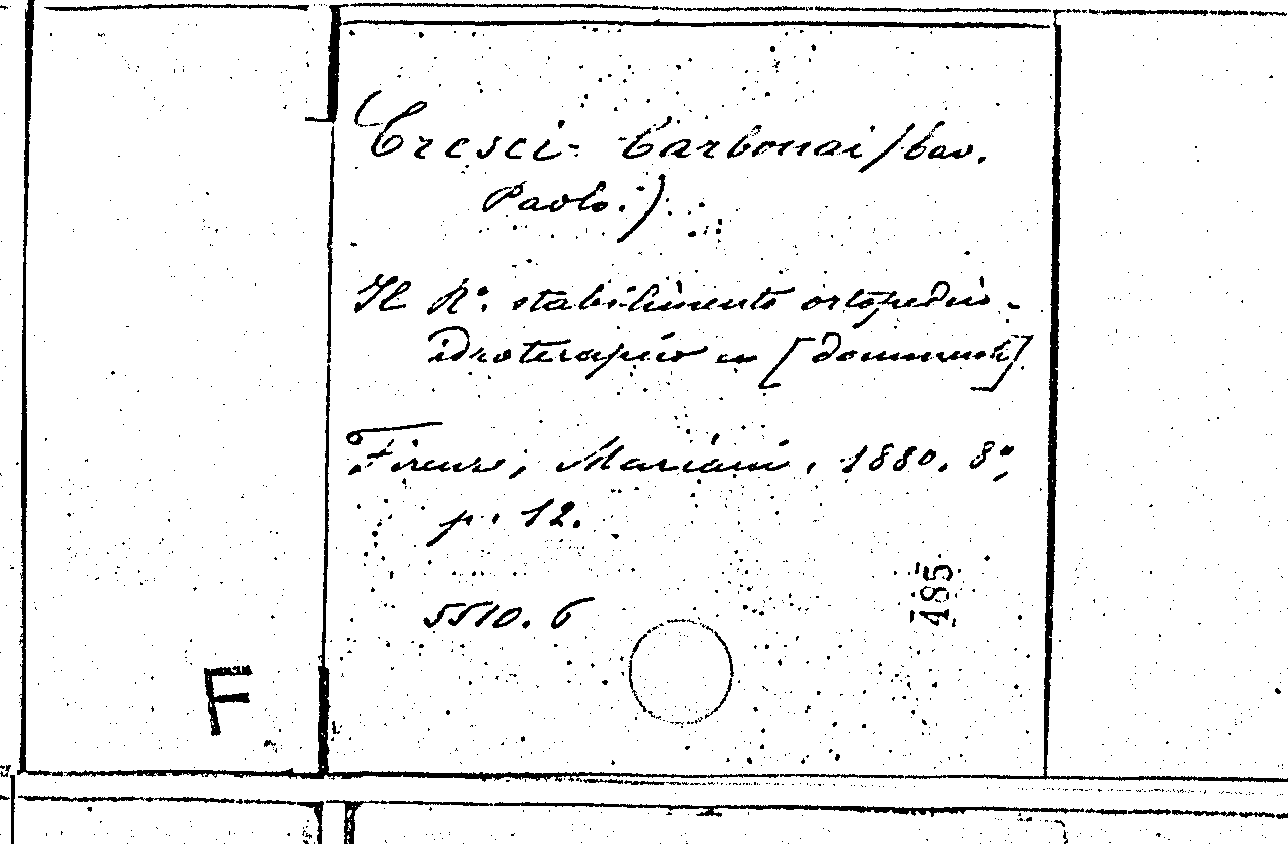 Cresci-Carbonai (Cav.
Paolo.)
Il R°. stabilimento ortopedico-
idroterapico in [documenti]
Firenze, Mariani, 1880. 8°,
p. 12.
5510. 6
485
F